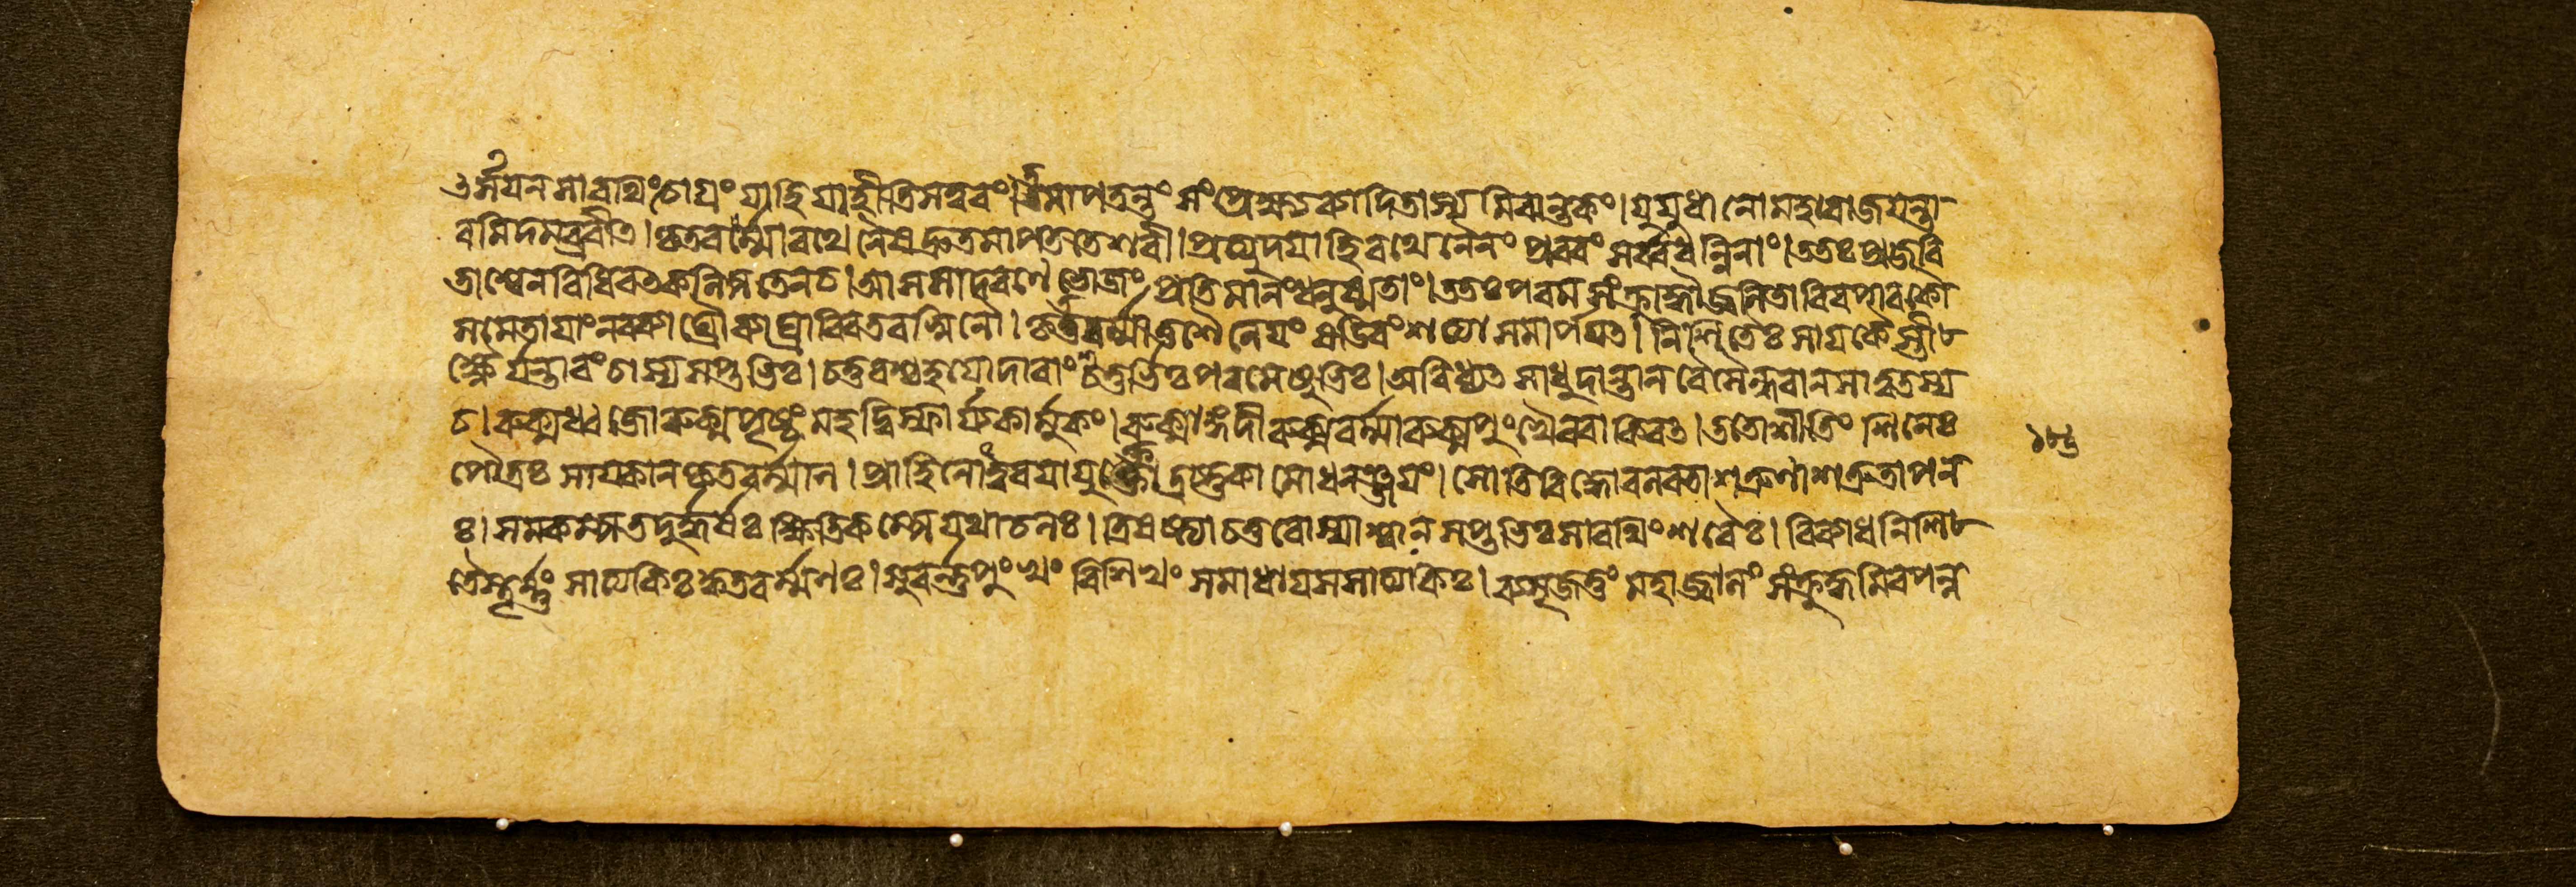 ৎসয়ন সারথিং চাগ্রং যাহি যাহীতি সত্বরং। তমাপতন্তং সংপ্রেক্ষ্য ব্যাদিতাস্যমিবান্তকং। যুযুধানো মহারাজ যন্তা
রমিদমব্রবীত্রি। কৃতবর্ম্মা রথেনৈষ দ্রুতমাপততে শরী। প্রত্যুদয়াহি রথেনৈনং প্রবরং সর্ব্বধন্বিনাং। ততঃ প্রজবি
তাশ্বেন বিধিবৎ কল্পিতেন চ। আসসাদ রণে ভোজং প্রতিমানং ধনুষ্মতাং। ততঃ পরমসংক্রুদ্ধৌ জ্বলিতাবিব পাবকৌ
সমেতায়াং নরব্যাঘ্রৌ ব্যাঘ্রাবিব তরস্বিনৌ। কৃতবর্ম্মা তু শৈনেয়ং ষড়্বিংশত্যা সমার্পয়ৎ। নিশিতৈঃ সায়কৈস্তী
ক্ষ্ণৈর্যন্তারং চাস্য সপ্তভিঃ। চতুরশ্চ হয়োদারাংশ্চতুর্ভিঃ পরমেষুভিঃ। অবিধ্যৎ সাধুদান্তান বৈ সৈন্ধবান সাত্বতস্য
চ। রুক্মধ্বজো রুক্মপৃষ্ঠং মহদ্বিস্ফার্য কার্ম্মুকং। রুক্মাঙ্গদী রুক্মবর্ম্মা রুক্মপুংখৈরবাকিরৎ। ততোশীতিং শিনেঃ
পৌত্রঃ সায়কান কৃতবর্ম্মান। প্রাহিনোত্ত্বরয়া যুক্তো দ্রষ্টুকামো ধনঞ্জয়ং। সোতিবিদ্ধো বলবতা শত্রুণা শত্রুতাপন
ঃ। সমকম্পত দুর্দ্ধর্ষঃ ক্ষিতিকম্পে যথাচলঃ। ত্রিষষ্ট্যা চতুরোস্যাশ্বান সপ্তভিঃ সারথিং শরৈঃ। বিব্যাধ নিশি
তৈস্তূর্ণং সাত্যকিঃ কৃতবর্ম্মণঃ। সুবর্ণপুংখং বিশিখং সমাধায় স সাত্যকিঃ। ব্যসৃজত্তং মহাজ্বালং সংক্রুদ্ধমিব পন্ন